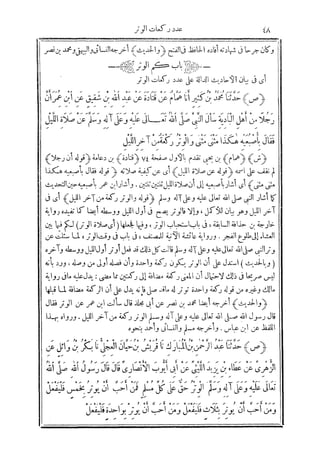 ٤٨ عدد ركعات الوتر
وكان جرحا فى شهادته أفاده الحافظ فى الفتح ﴿والحديث﴾ أخرجه النسائى والبيهقى ومحمد بن نصر
باب كم الوتر
أى فى بيان الأحاديث الدالة على عدد ركعات الوتر
﴿ص﴾ حَدَّثَنَا مُحَمَّدُ بْنُ كَثِيرٍ أَنَا هَمَّامٌ عَنْ قَتَادَةَ عَنْ عَبْدِ اللهِ بْنِ شَقِيقٍ عَنِ ابْنِ عُمَرَ أَنَّ
رَجُلًا مِنْ أَهْلِ الْبَادِيَةِ سَأَلَ النَّبِيَّ صَلَّى اللهُ تَعَالَى عَلَيْهِ وَعَلَى آلِهِ وَسَلَّمَ عَنْ صَلَاةِ اللَّيْلِ
فَقَالَ بِأُصْبُعَيْهِ هٰكَذَا مَثْنَى مَثْنَى وَالْوِتْرُ رَكْعَةٌ مِنْ آخِرِ اللَّيْلِ
﴿ش﴾ ﴿همام﴾ بن يحيى تقدم بالأول صفحة ٧٤ ﴿قتادة﴾ بن دعامة ﴿قوله أن رجلا﴾
لم نقف على اسمه ﴿قوله عن صلاة الليل﴾ أى عن كيفية صلاته ﴿قوله فقال بأصبعيه هكذا
مثنى مثنى﴾ أى أشار بأصبعيه إلى أن صلاة الليل ثنتين ثنتين. وأشار ابن عمر بأصبعيه حين التحديث
كما أشار النبى صلى الله تعالى عليه وعلى آله وسلم ﴿قوله والوتر ركعة من آخر الليل﴾ أى فى
آخر الليل وهو بيان للأكمل، وإلا فالوتر يصح فى أول الليل ووسطه أيضا كما تفيده رواية
خارجة بن حذافة السابقة، فى باب استحباب الوتر، وفيها فجعلها (أى صلاة الوتر) لكم فيما بين
العشاء إلى طلوع الفجر. ورواية عائشة الآتية للمصنف فى باب فى وقت الوتر، لما سئلت عن
وتر النبى صلى الله تعالى عليه وعلى آله وسلم قالت كل ذلك قد فعل أوتر أول الليل ووسطه وآخره
﴿والحديث﴾ استدل على أن الوتر يكون ركعة واحدة وأن فصله أولى من وصله. ورد بأنه
ليس صريحا فى ذلك لاحتمال أن المعنى ركعة مضافة إلى ركعتين مما مضى: يدل عليه ما فى رواية
مالك وغيره من قوله ركعة واحدة توتر له ما قد صلى فإنه يدل على أن الركعة مضافة لما قبلها
﴿والحديث﴾ أخرجه أيضا محمد بن نصر عن أبى مجلز قال سألت ابن عمر عن الوتر فقال
قال رسول الله صلى الله تعالى عليه وعلى آله وسلم الوتر ركعة من آخر الليل. ورواه بهذا
اللفظ عن ابن عباس. وأخرجه مسلم والنسائى وأحمد بنحوه
﴿ص﴾ حَدَّثَنَا عَبْدُ الرَّحْمٰنِ بْنُ الْمُبَارَكِ نَا قُرَيْشُ بْنُ حَيَّانَ الْعِجْلِيُّ نَا بَكْرُ بْنُ وَائِلٍ عَنِ
الزُّهْرِيِّ عَنْ عَطَاءِ بْنِ يَزِيدَ اللَّيْثِيِّ عَنْ أَبِي أَيُّوبَ الْأَنْصَارِيِّ قَالَ قَالَ رَسُولُ اللهِ صَلَّى اللهُ
تَعَالَى عَلَيْهِ وَعَلَى آلِهِ وَسَلَّمَ الْوِتْرُ حَقٌّ عَلَى كُلِّ مُسْلِمٍ فَمَنْ أَحَبَّ أَنْ يُوتِرَ بِخَمْسٍ فَلْيَفْعَلْ
وَمَنْ أَحَبَّ أَنْ يُوتِرَ بِثَلَاثٍ فَلْيَفْعَلْ وَمَنْ أَحَبَّ أَنْ يُوتِرَ بِوَاحِدَةٍ فَلْيَفْعَلْ